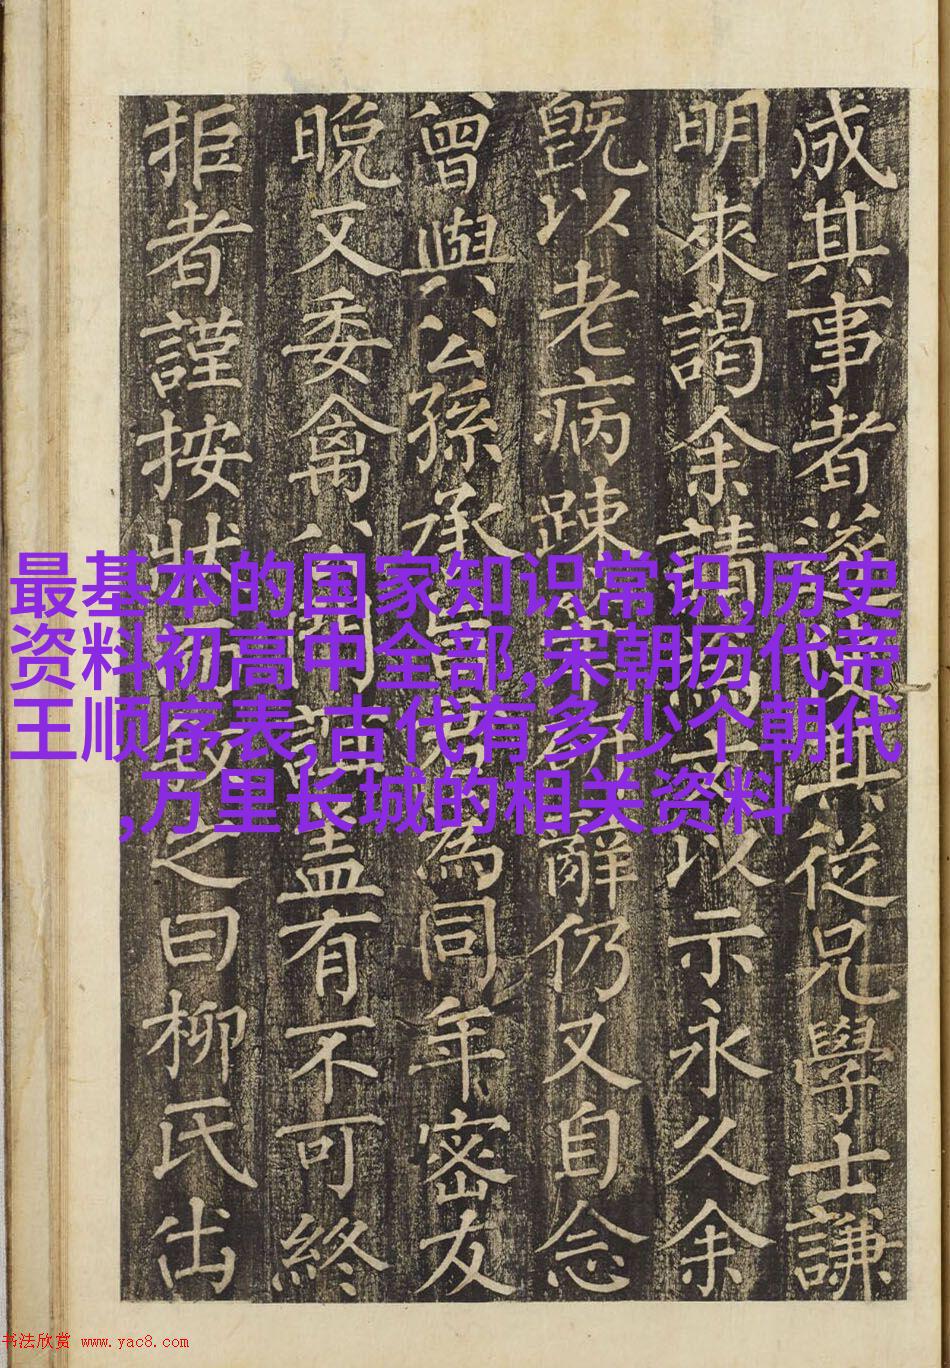 成其事者遂其從兄學士謙
明來謁余請為文以示永久余
既以老病疎辭仍又自念
曾與公孫承為同年密友
晚又委禽公門誼盖有不可終
拒者謹按狀而叙之曰柳氏出
最基本的国家知识常识,历史
资料初高中全部,宋朝历代帝
王顺序表,古代有多少个朝代
,万里长城的相关资料
书法欣赏 www.yac8.com